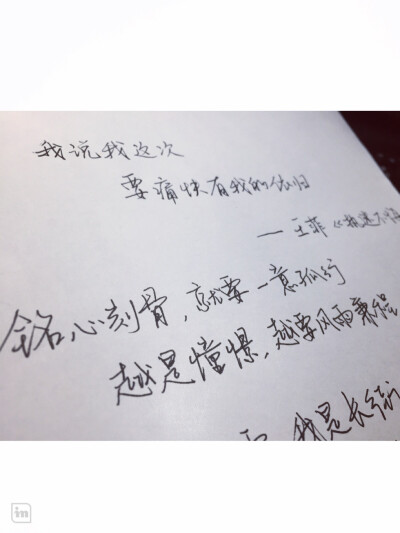 我说我这次
要痛快有我的依归
——王菲《执迷不悔
铭心刻骨,就要一意孤行
越是憧憬,越要风雨兼程
我是长街
in